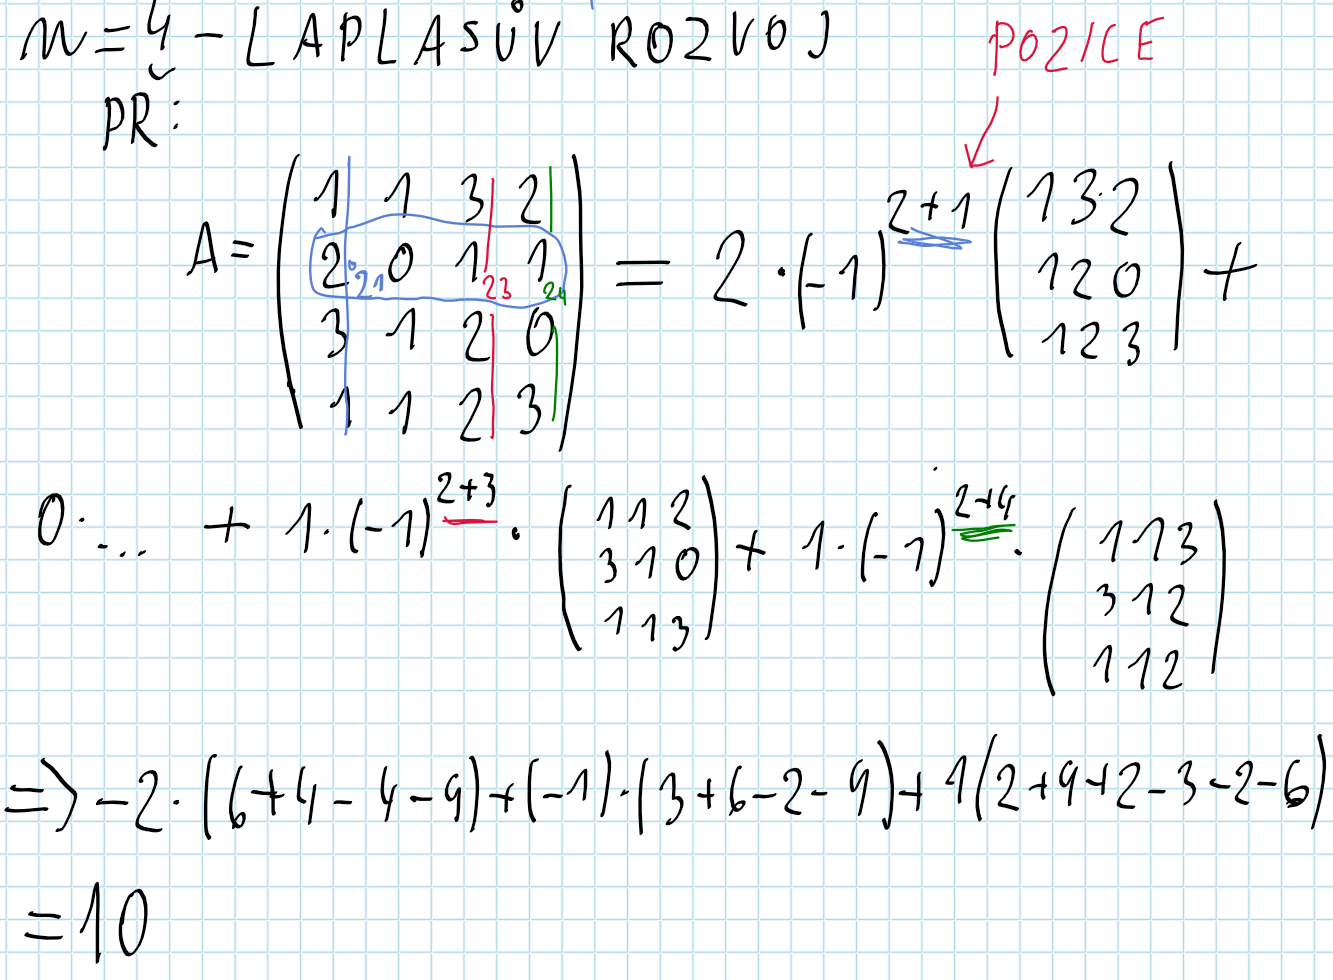 n=4 - LAPLASŮV ROZVOJ
POZICE
PŘ:
A = ( 1 1 3 2
2 0 1 1
3 1 2 0
1 1 2 3 ) = 2·(-1)^2+1 ( 1 3 2
1 2 0
1 2 3 ) +
21 23 24
0·... + 1·(-1)^2+3 · ( 1 1 2
3 1 0
1 1 3 ) + 1·(-1)^2+4 · ( 1 1 3
3 1 2
1 1 2 )
=> -2·(6+4-4-9)+(-1)·(3+6-2-9)+1(2+9+2-3-2-6)
=10